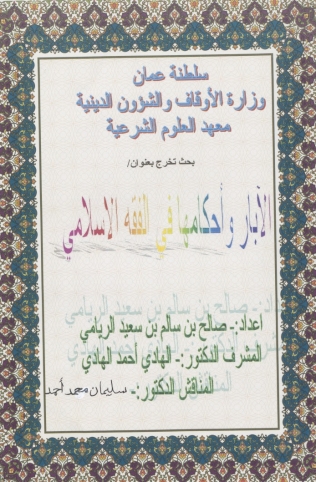 سلطنة عمان
وزارة الأوقاف والشؤون الدينية
معهد العلوم الشرعية
بحث تخرج بعنوان/
الآبار وأحكامها في الفقه الاسلامي
اعداد:- صالح بن سالم بن سعيد الريامي
المشرف الدكتور:- الهادي أحمد الهادي
المناقش الدكتور:- سليمان محمد أحمد